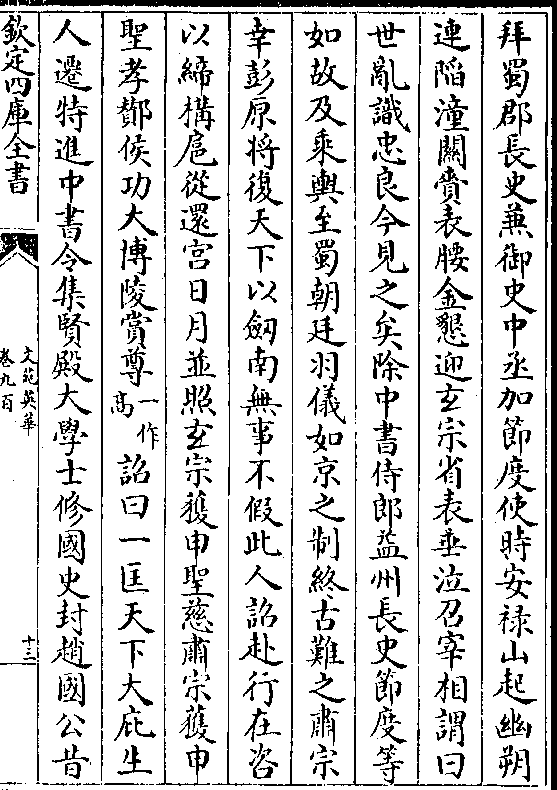 拜蜀郡長史兼御史中丞加節度使時安禄山起幽朔
連陷潼關賫表腰金懇迎玄宗省表垂泣召宰相謂曰
世亂識忠良今見之矣除中書侍郎益州長史節度等
如故及乘輿至蜀朝廷羽儀如京之制終古難之肅宗
幸彭原将復天下以劒南無事不假此人詔赴行在咨
以締構扈從還宫日月並照玄宗獲申聖慈肅宗獲申
聖孝鄼侯功大博陵賞尊一作高詔曰一匡天下大庇生
人遷特進中書令集賢殿大學士修國史封趙國公昔
欽定四庫全書
文苑英華
卷九百
十三